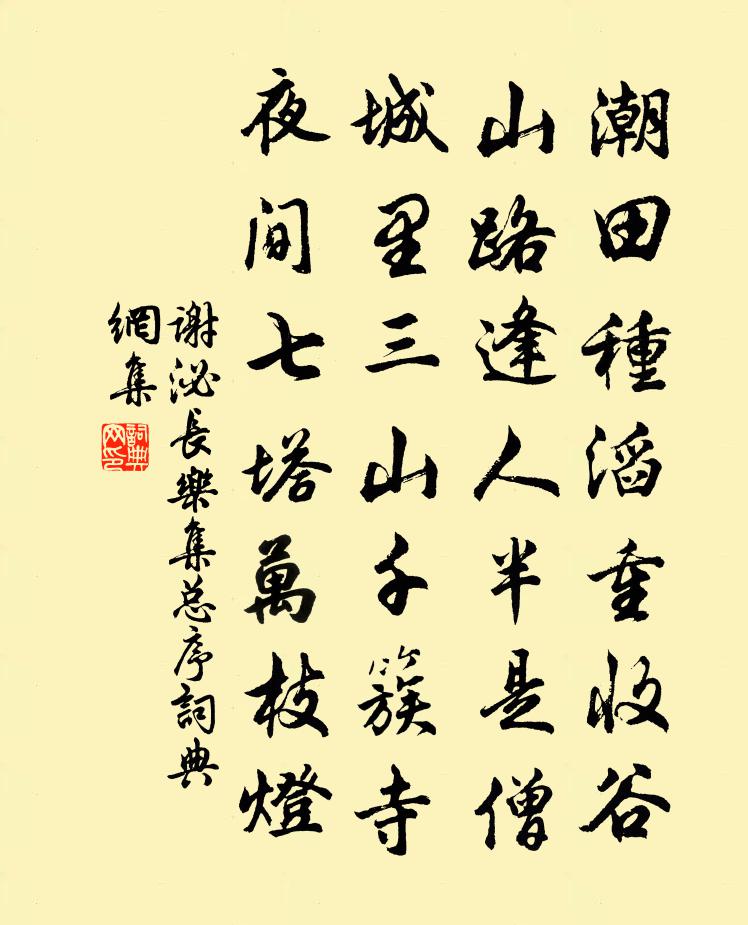 潮田種滔重收谷
山路逢人半是僧
城里三山千簇寺
夜间七塔萬枝燈
谢泌長樂集总序詞典
網集
詞典
网印